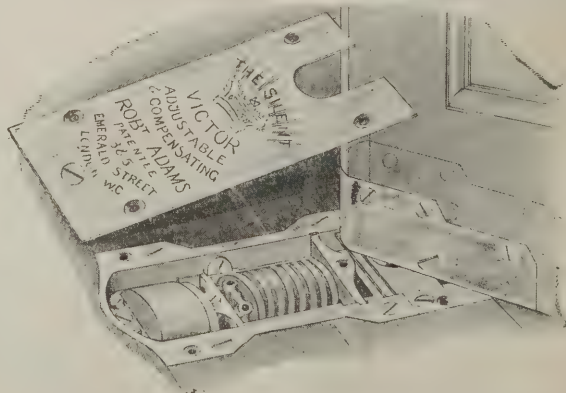 THE SILENT
VICTOR
ADJUSTABLE
& COMPENSATING
ROBT ADAMS
PATENTEE
3 & 5
EMERALD STREET
LONDON WC